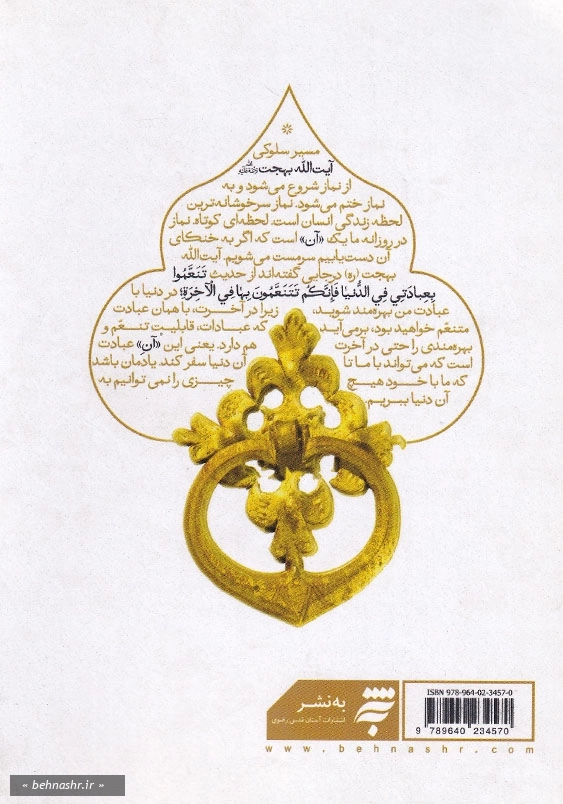 مسیر سلوکی
آیت‌الله بهجت
از نماز شروع می‌شود و به
نماز ختم می‌شود. نماز سرخوشانه‌ترین
لحظه زندگی انسان است. لحظه‌ای کوتاه. نماز
در روزانه ما یک «آن» است که اگر به خنکای
آن دست‌یابیم سرمست می‌شویم. آیت‌الله
بهجت (ره) درجایی گفته‌اند از حدیث تَنَعَّمُوا
بِعِبادَتي فِي الدُّنیا فَإِنَّکُم تَتَنَعَّمُونَ بِها فِي الْآخِرَةِ؛ در دنیا با
عبادت من بهره‌مند شوید، زیرا در آخرت، با همان عبادت
متنعّم خواهید بود، برمی‌آید که عبادات، قابلیتِ تنعّم و
بهره‌مندی را حتی در آخرت هم دارد. یعنی این «آنِ» عبادت
است که می‌تواند با ما تا آن دنیا سفر کند. یادمان باشد
که ما با خود هیچ چیزی را نمی توانیم به
آن دنیا ببریم.
به‌نشر
انتشارات آستان قدس رضوی
www.behnashr.com
ISBN 978-964-02-3457-0
9 789640 234570
« behnashr.ir »